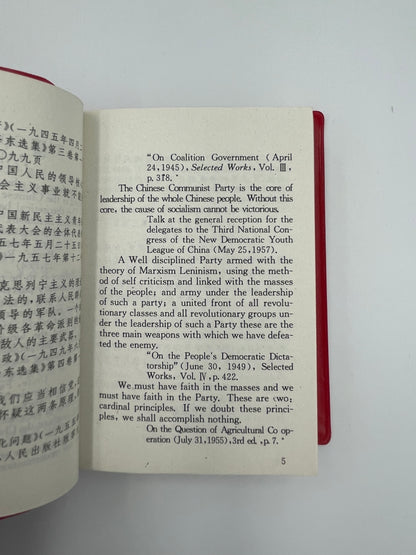 》(一九四五年四月二
东选集》第三卷第一
〇九九页
中国人民的领导核
会主义事业就不
中国新民主主义青年
代表大会的全体代表
五七年五月二十五日
九五七年第十二
克思列宁主义的
法的,联系人民群
领导的军队。一
阶级各革命派别
敌人的主要武器。
政》(一九四九年六
东选集》第四卷第
我们应当相信党,
怀疑这两条原理,
化问题》(一九五五
人民出版社版第
"On Coalition Government (April
24,1945), Selected Works, Vol. Ⅲ,
p. 318. *
The Chinese Communist Party is the core of
leadership of the whole Chinese people. Without this
core, the cause of socialism cannot be victorious.
Talk at the general reception for the
delegates to the Third National Cong-
ress of the New Democratic Youth
League of China (May 25,1957).
A Well disciplined Party armed with the
theory of Marxism Leninism, using the meth-
od of self criticism and linked with the masses
of the people; and army under the leadership
of such a party; a united front of all revolu-
tionary classes and all revolutionary groups un-
der the leadership of such a Party these are the
three main weapons with which we have defea-
ted the enemy.
"On the People's Democratic Dicta-
torship" (June 30, 1949), Selected
Works, Vol. Ⅳ, p. 422.
We must have faith in the masses and we
must have faith in the Party. These are two;
cardinal principles. If we doubt these princi-
ples, we shall accomplish nothing.
On the Question of Agricultural Co op-
eration (July 31,1955),3rd ed. ,p. 7. *
5